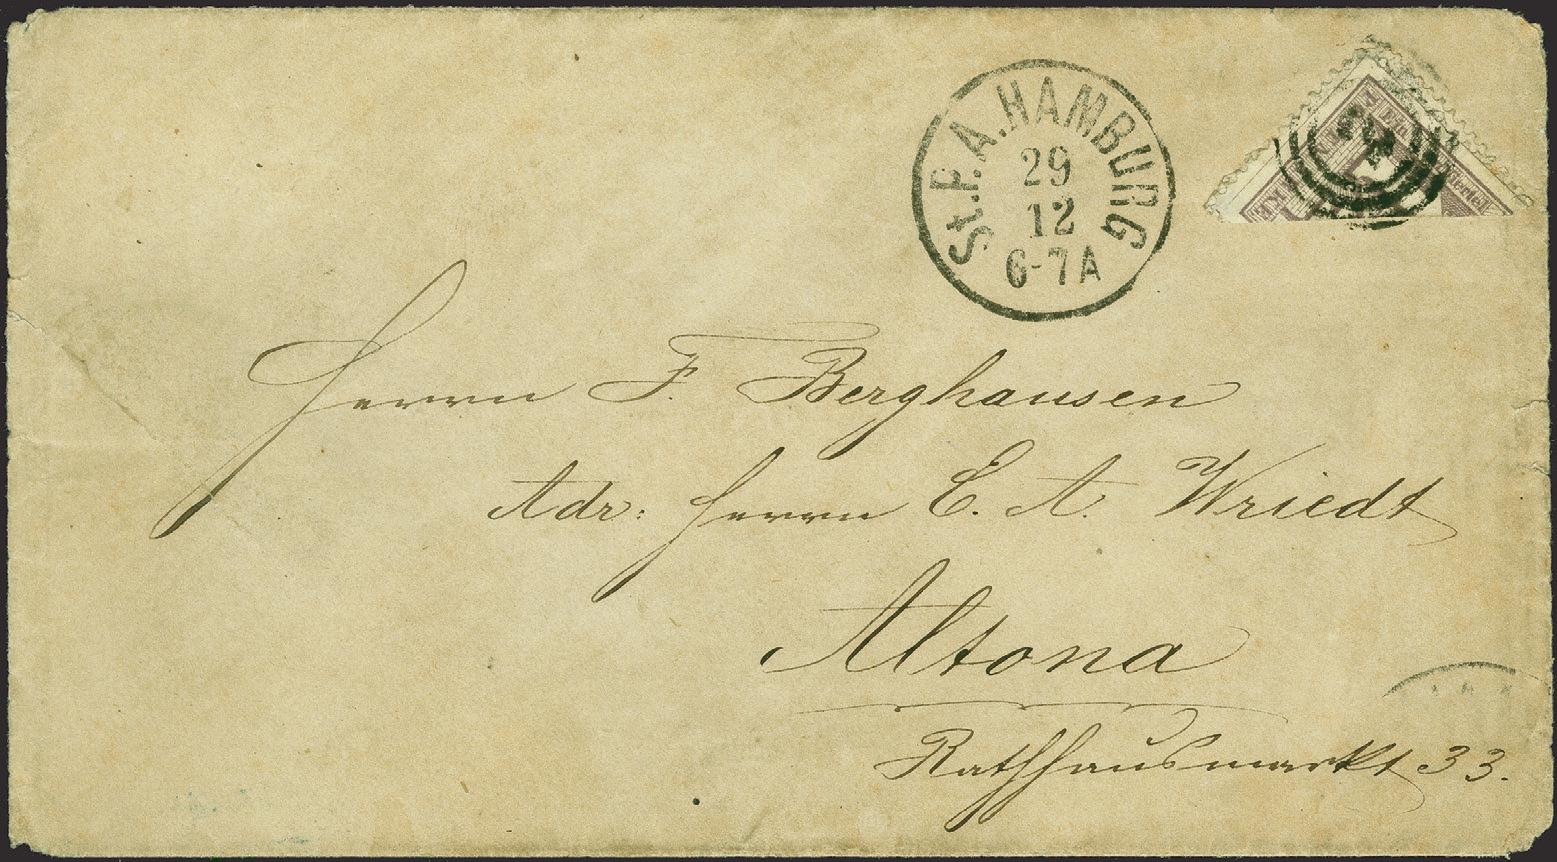 St. P. A. HAMBURG
29
12
6-7 A
Herrn F. Berghausen
Adr: Herrn E. A. Wriedt
Altona
Rathhausmarkt 33.